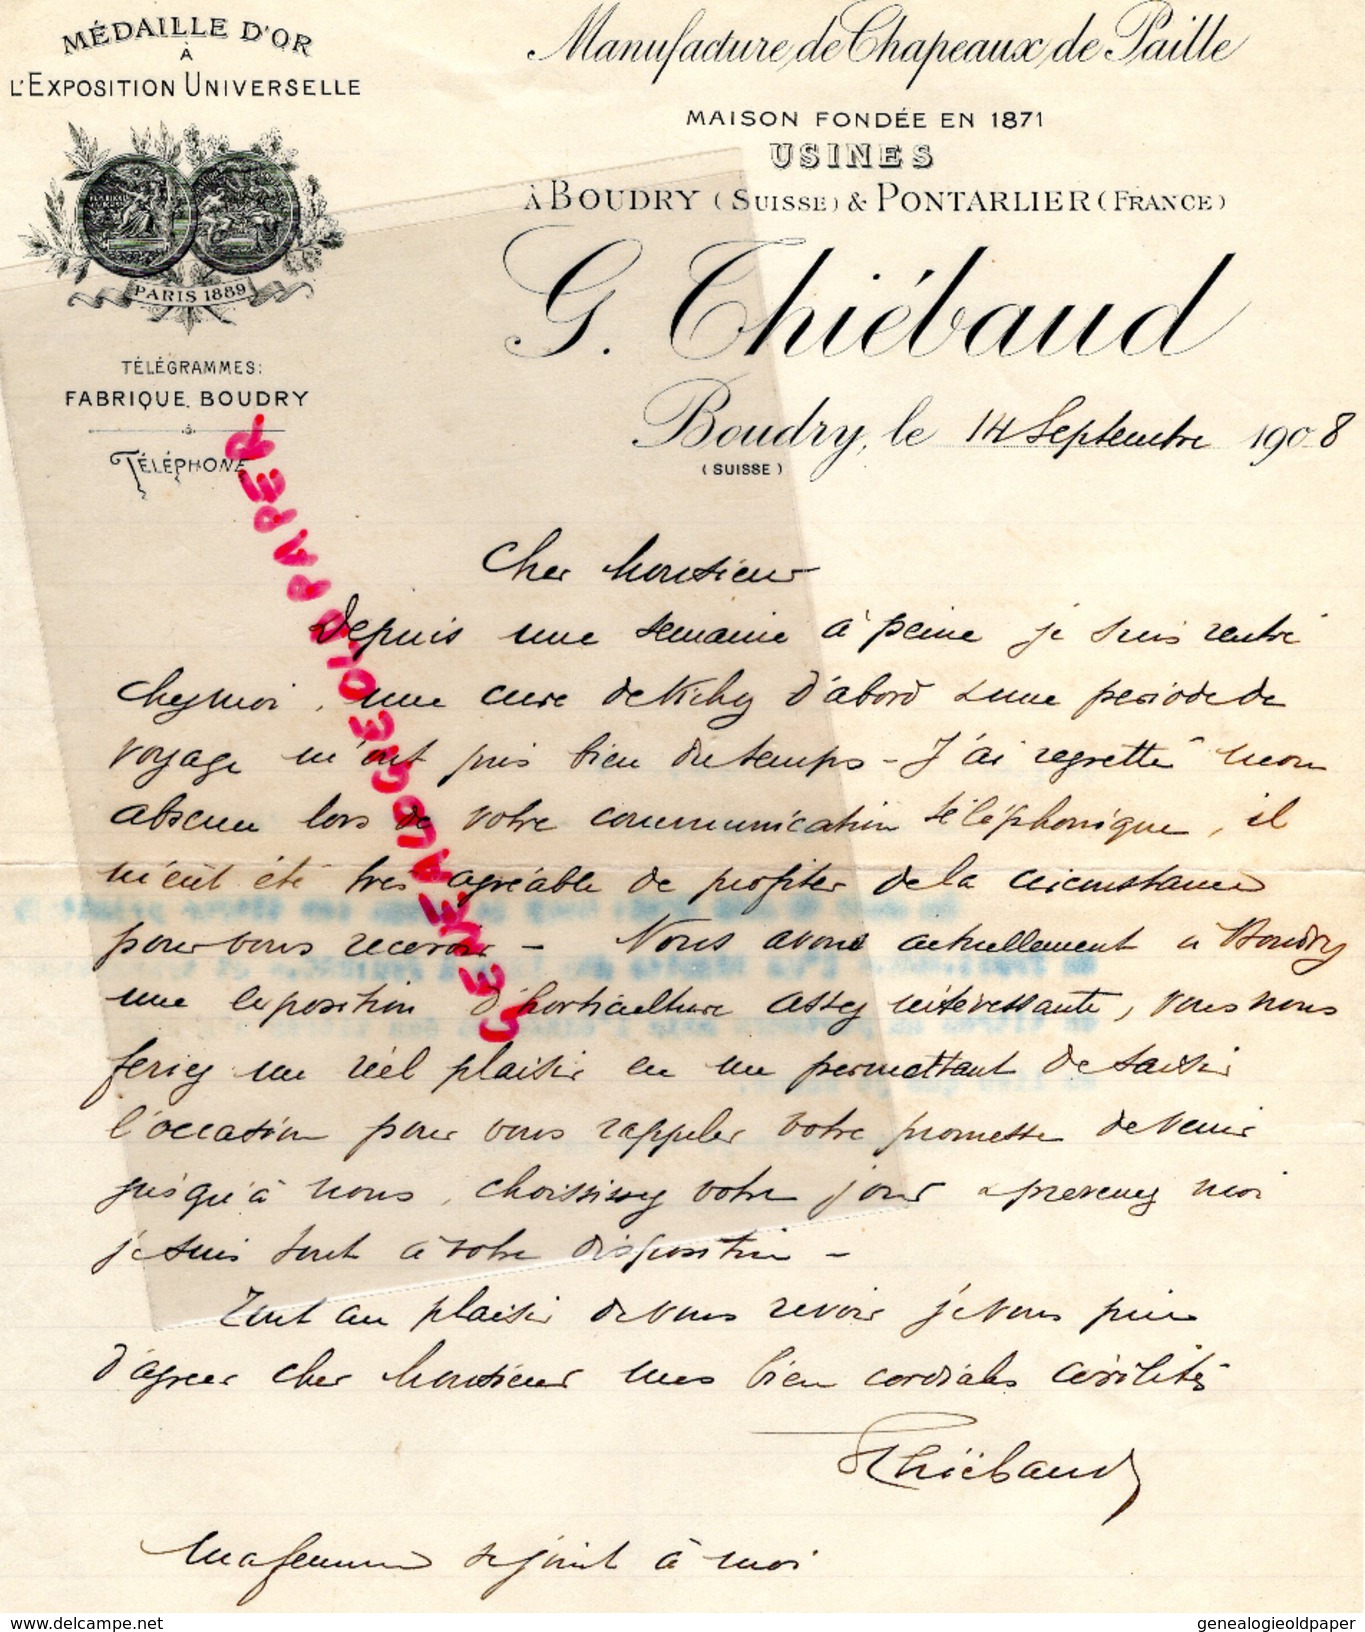 MÉDAILLE D'OR
À
L'EXPOSITION UNIVERSELLE
PARIS 1889
TÉLÉGRAMMES:
FABRIQUE. BOUDRY
TÉLÉPHONE
Manufacture de Chapeaux de Paille
MAISON FONDÉE EN 1871
USINES
À BOUDRY (SUISSE) & PONTARLIER (FRANCE)
G. Thiébaud
Boudry, le 14 Septembre 1908
(SUISSE)
Cher Monsieur
Depuis une semaine à peine je suis rentré
chez moi, une cure de Vichy d'abord & une periode de
voyage m'ont pris bien du temps - J'ai regretté mon
absence lors de votre communication téléphonique, il
m'eût été très agréable de profiter de la circonstance
pour vous recevoir - Nous avons actuellement à Boudry
une exposition d'horticulture assez intéressante, vous nous
feriez un réel plaisir en me permettant de saisir
l'occasion pour vous rappeler votre promesse de venir
jusqu'à nous, choisissez votre jour & prevenez moi
je suis tout à votre disposition -
Tout au plaisir de vous revoir je vous prie
d'agreer cher Monsieur mes bien cordiales civilités
GThiébaud
Ma femme se joint à moi
GENEALOGIEOLDPAPER
www.delcampe.net
genealogieoldpaper